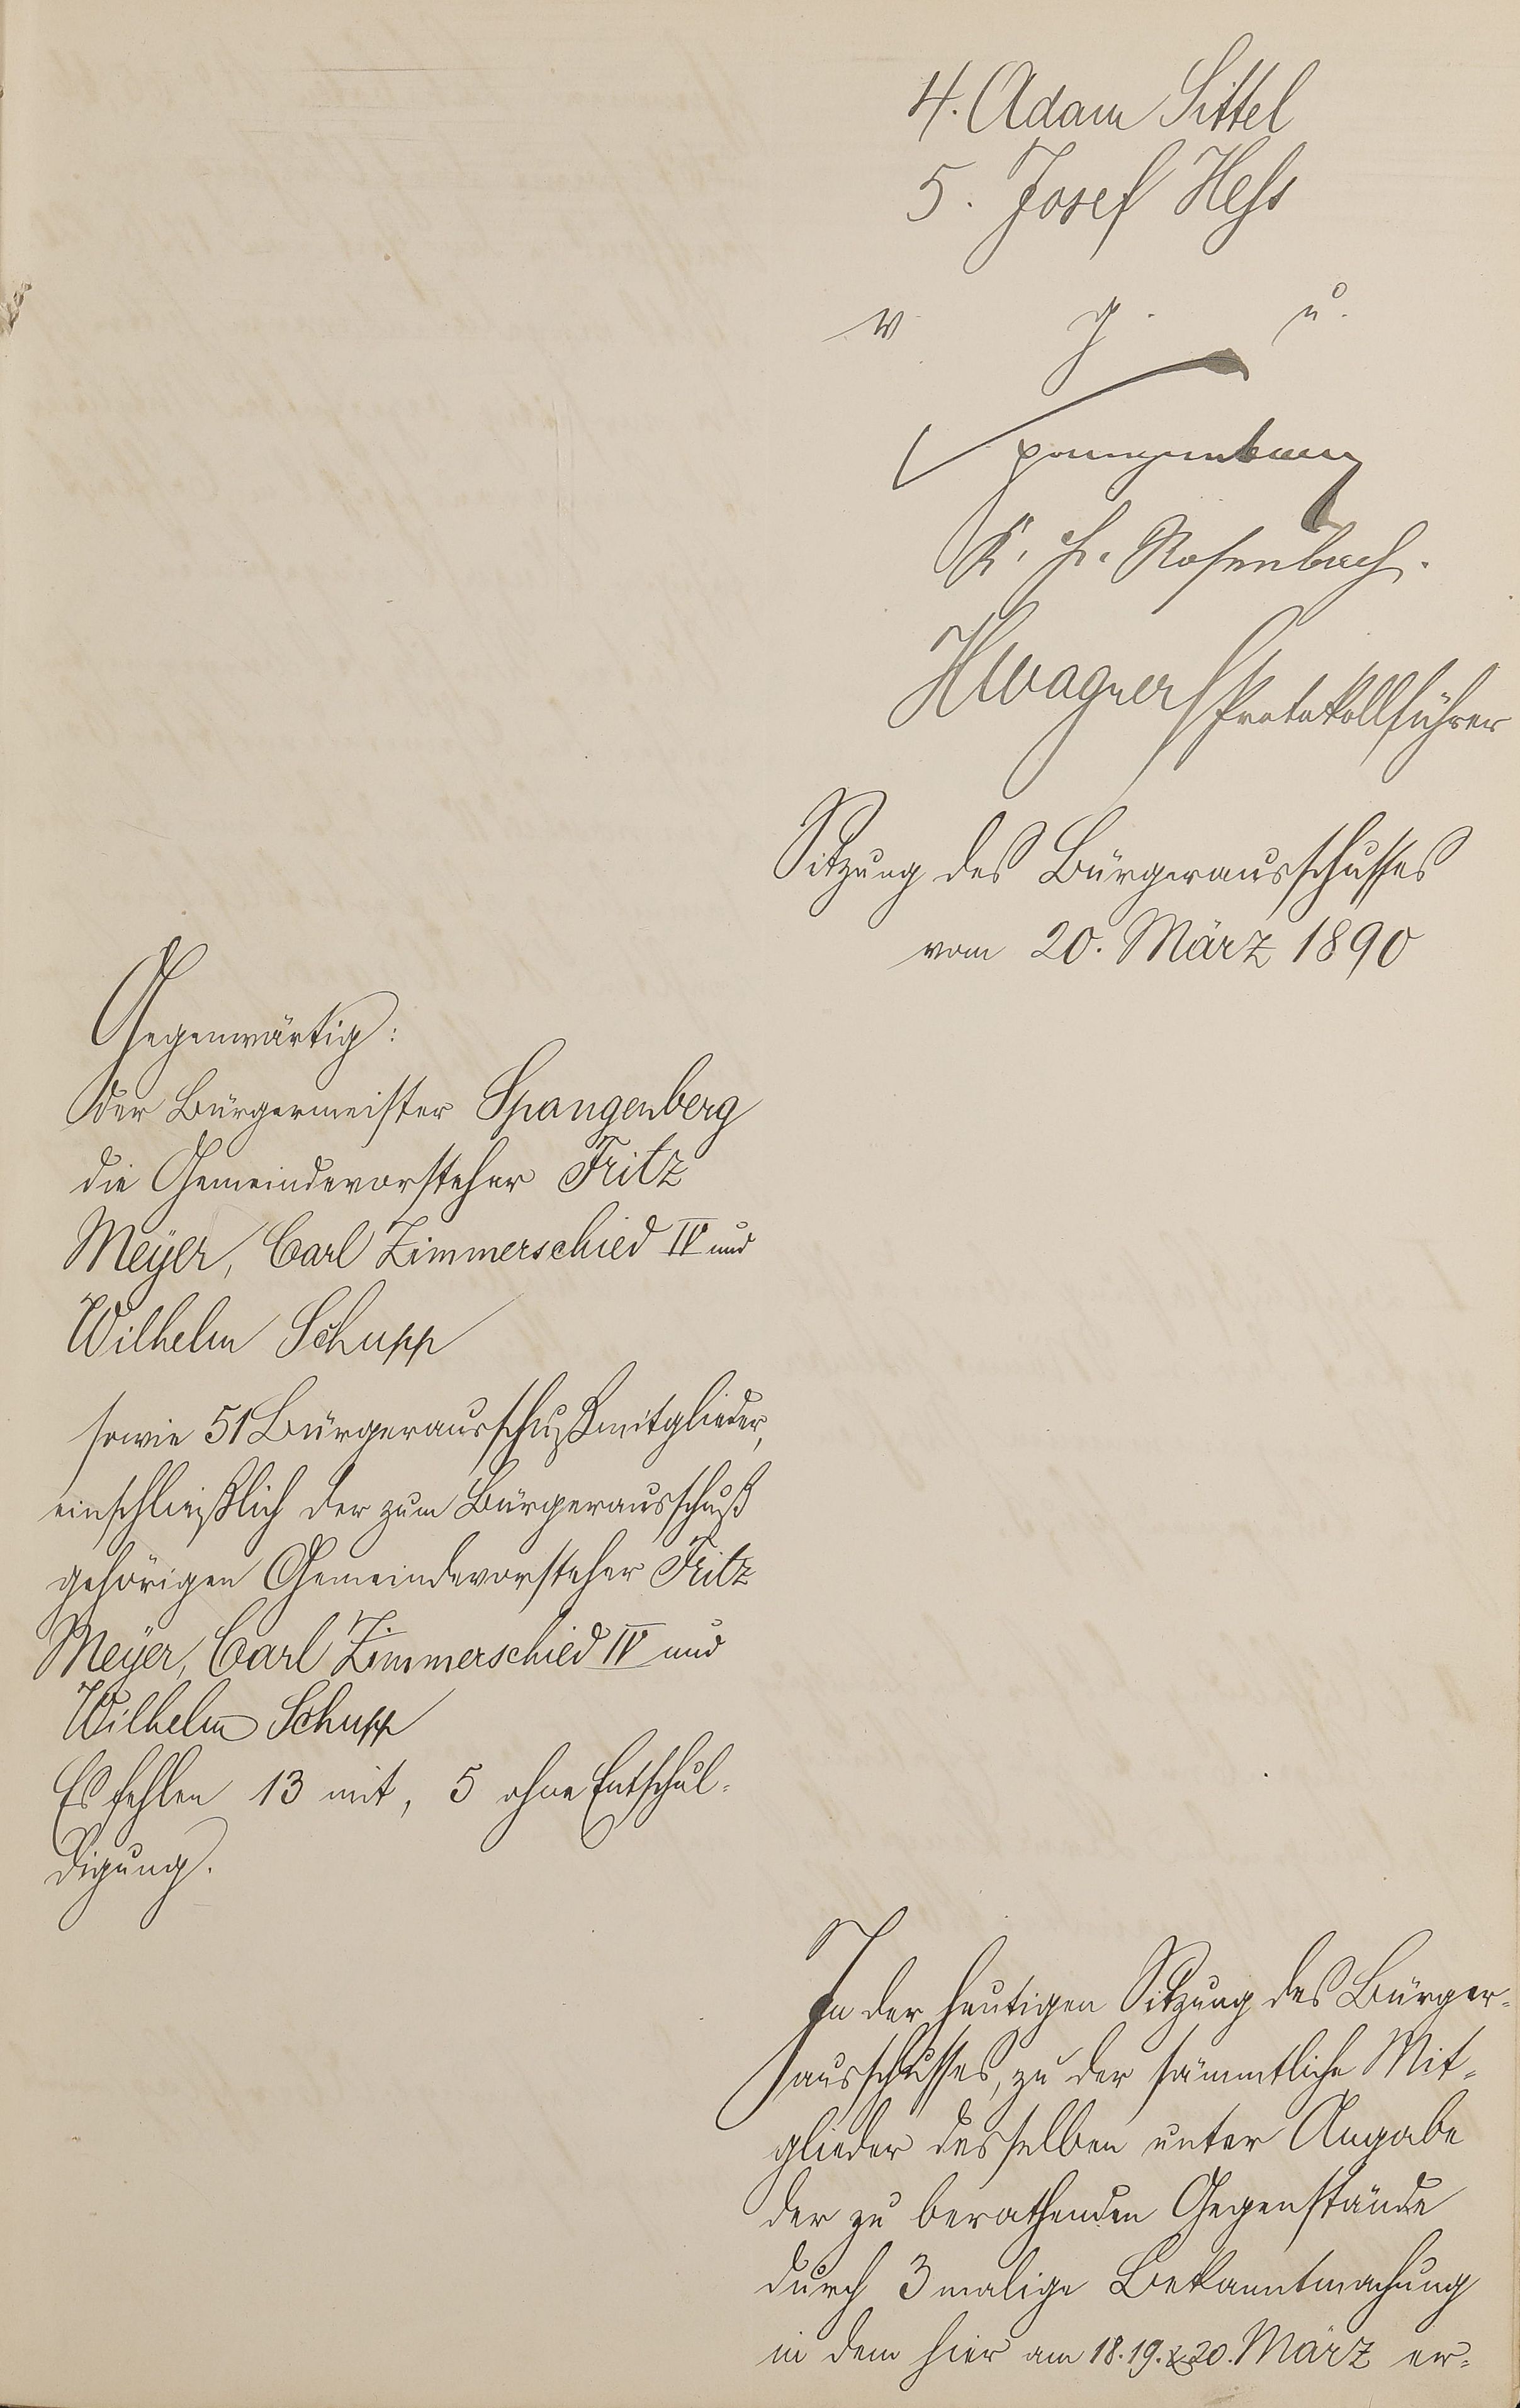 4. Adam Sittel
5. Josef Hess
v. g. u.
Spangenberg
K. H. Rosenbach.
HWagner Protokollführer
Sitzung des Bürgerausschusses
vom 20. März 1890
Gegenwärtig:
Der Bürgermeister Spangenberg
die Gemeindevorsteher Fritz
Meÿer, Carl Zimmerschied IV und
Wilhelm Schupp
sowie 51 Bürgerausschußmitglieder,
einschließlich der zum Bürgerausschuß
gehörigen Gemeindevorsteher Fritz
Meÿer, Carl Zimmerschied IV und
Wilhelm Schupp
Es fehlen 13 mit, 5 ohne Entschul-
digung.
In der heutigen Sitzung des Bürger-
ausschusses, zu der sämmtliche Mit-
glieder desselben unter Angabe
der zu berathenden Gegenstände
durch 3 malige Bekanntmachung
in dem hier am 18. 19. & 20. März er-